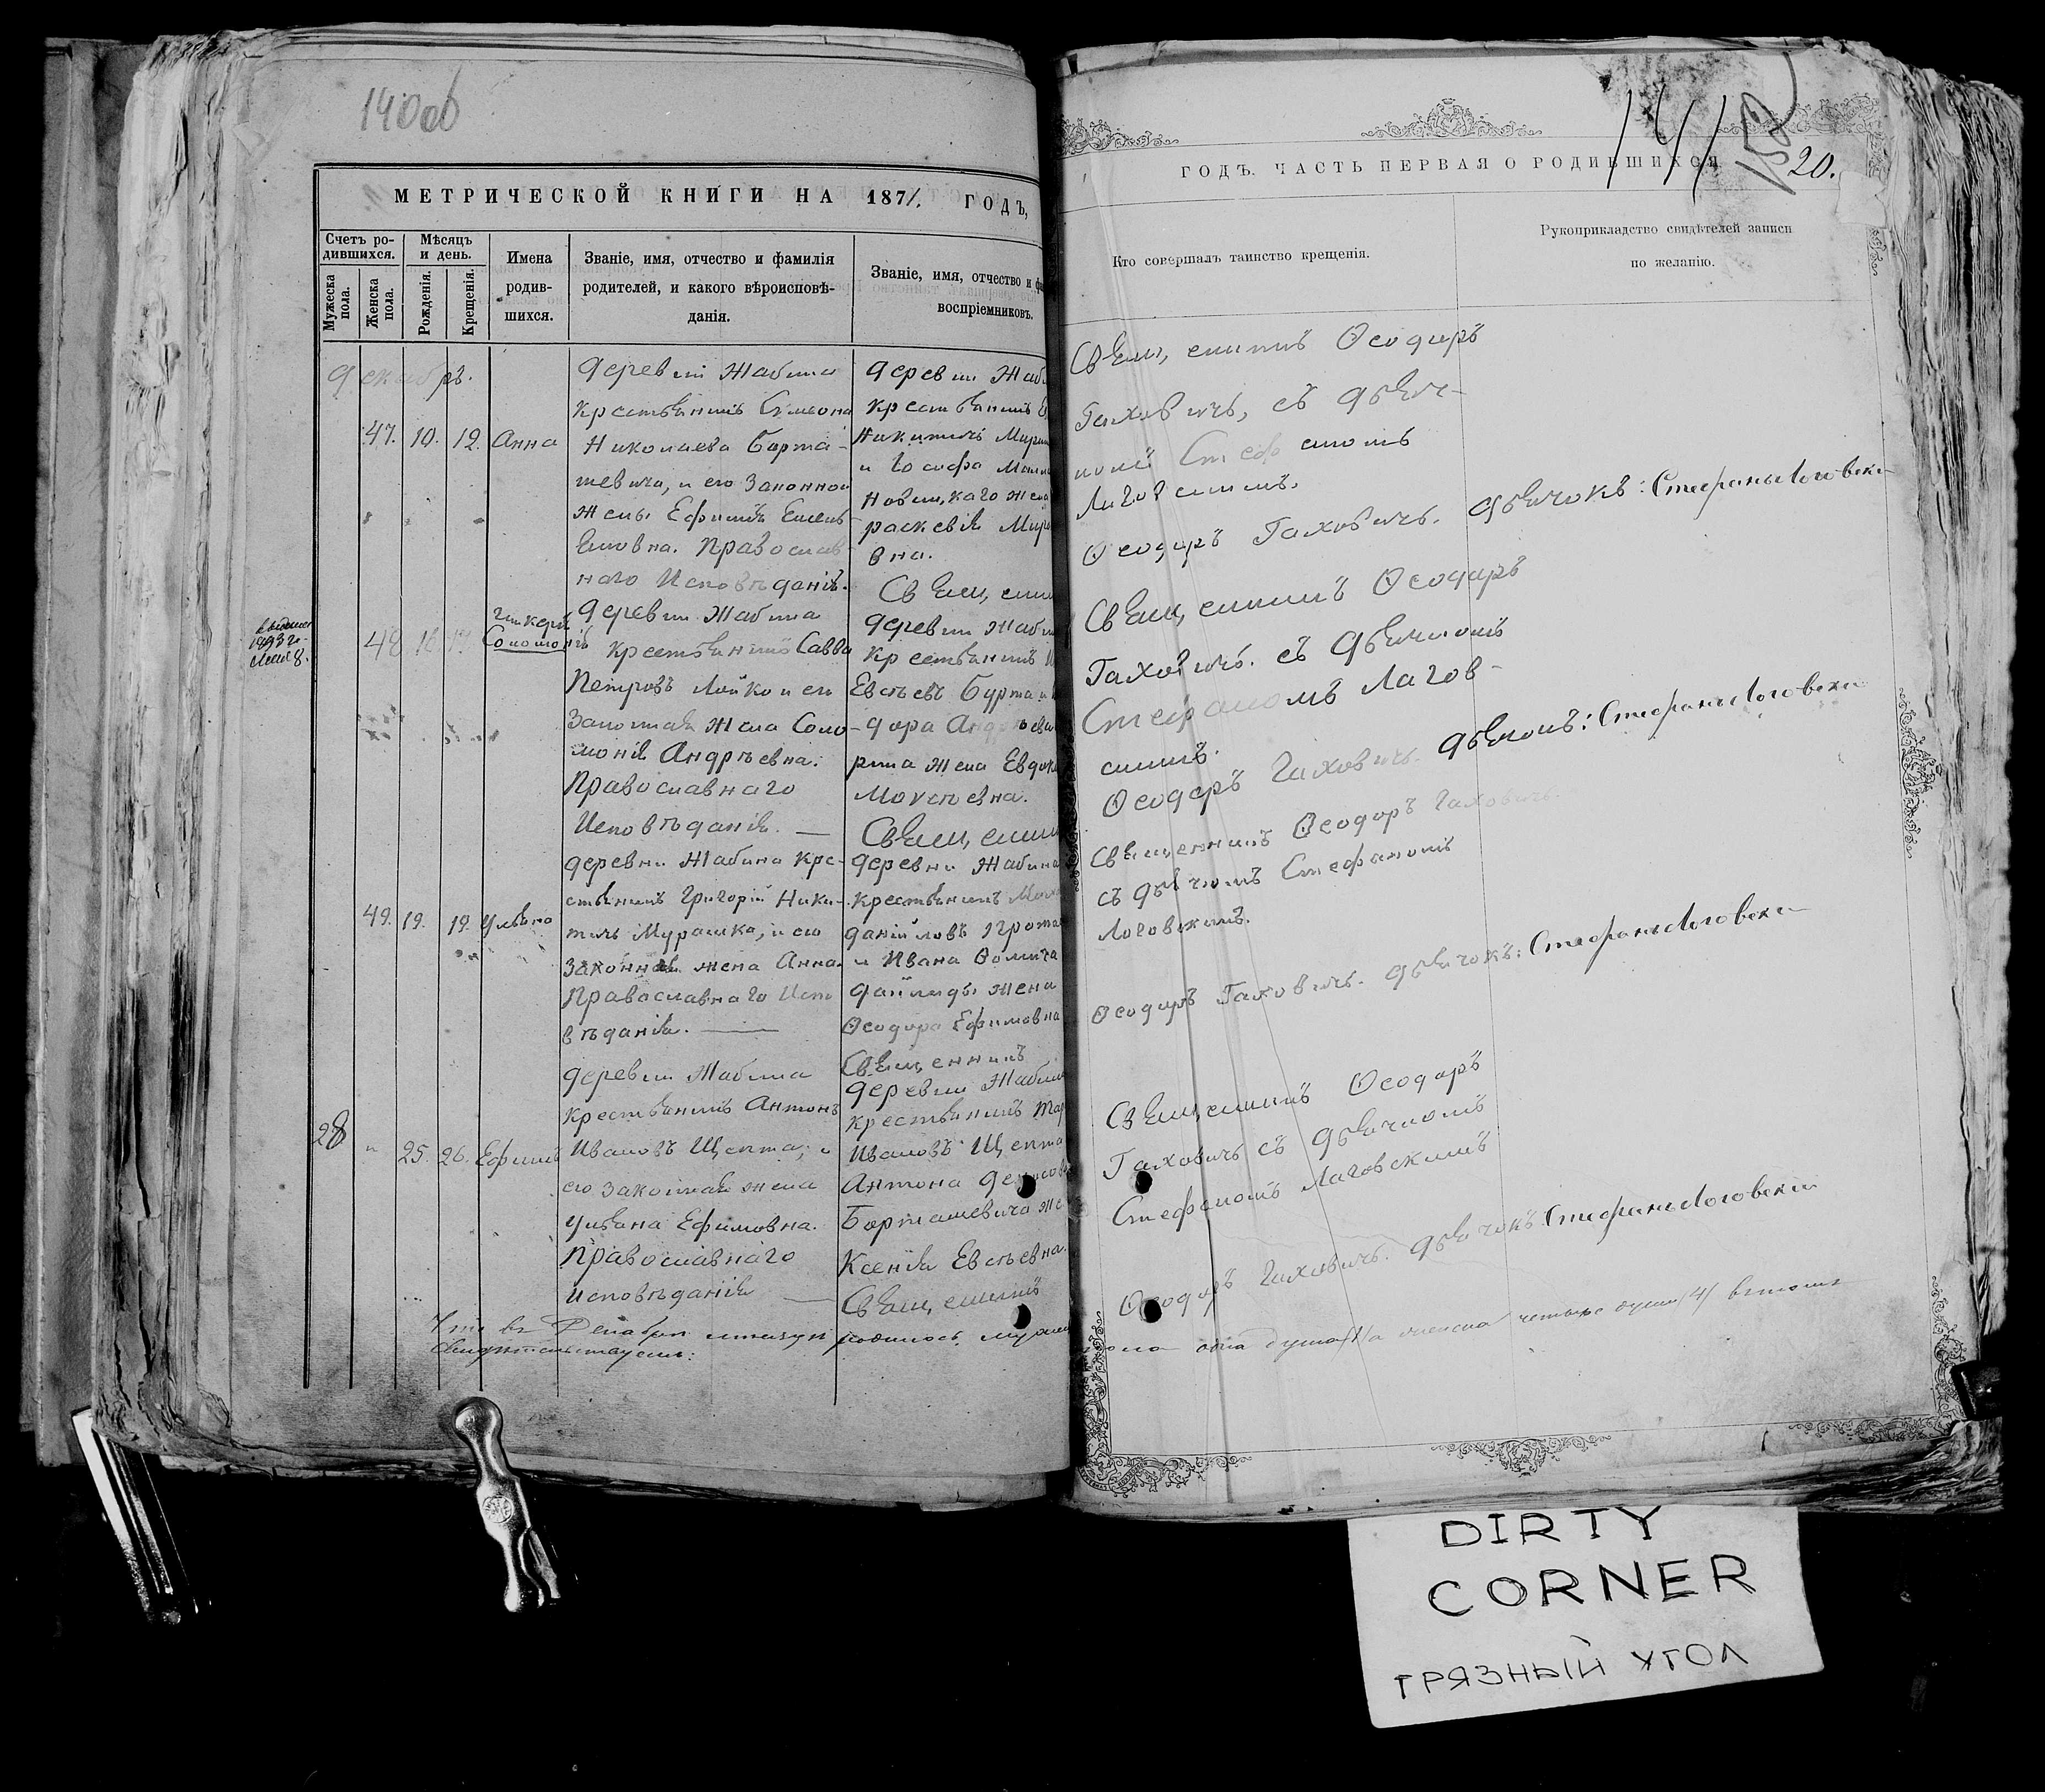 140об
МЕТРИЧЕСКОЙ КНИГИ НА 1871. ГОДЪ,
Счетъ ро-
дившихся.
Мѣсяцъ
и день.
Мужеска
пола.
Женска
пола.
Рожденія.
Крещенія.
Имена
родив-
шихся.
Званіе, имя, отчество и фамилія
родителей, и какого вѣроисповѣ-
данія.
Званіе, имя, отчество и
воспріемниковъ.
Декабрь.
47. 10. 12. Анна
Деревни Жабина
крестьянинъ Симеонъ
Николаева Барта-
шевича, и его законной
жены Ефимія Емель-
яновна. Православ-
наго Исповѣданія.
Деревни Жаб
крестьянинъ
Никитичъ
и Іосифа
жена
раскевія
вна.
Священни
1893 г.
48
Гликерія
Соломонія
Деревни Жабина
крестьянинъ Савва
Петровъ Лойко и его
Законная жена Соло-
монія Андрѣевна.
Православнаго
Исповѣданія. —
Деревни Жаби
крестьянинъ
Евсѣевъ
дора
жена Евдок
Моѵсѣевна.
Священни
49. 19. 19. Ульяна
деревни Жабина кре-
стьянинъ Григорій Ники-
тичъ Мурашко, и его
законная жена Анна.
Православнаго Испо
вѣданія. —
деревни Жабина
крестьянинъ
даніиловъ
и Ивана Ѳомича
жена
Ѳеодора Ефимовна
Священникъ
28 „ 25. 26. Ефимъ
Деревни Жабина
крестьянинъ Антонъ
Ивановъ Щепта, и
его законная жена
Ульяна Ефимовна.
Православнаго
исповѣданія —
Деревни Жабин
крестьянинъ
Ивановъ Щепта
Антона
Барташевича же
Ксенія Евсѣевна.
Священникъ
Что въ Декабрѣ мѣсяцѣ родилось муже
свидѣтельствуемъ:
141
20.
ГОДЪ. ЧАСТЬ ПЕРВАЯ О РОДИВШИХСЯ.
Кто совершалъ таинство крещенія.
Рукоприкладство свидѣтелей записи
по желанію.
Священникъ Ѳеодоръ
Гаховичъ, съ дьяч-
комъ Стефаномъ
Лаговскимъ.
Ѳеодоръ Гаховичъ. Дьячокъ: Стефанъ Лаговскій
Священникъ Ѳеодоръ
Гаховичъ. съ Дьячкомъ
Стефаномъ Лагов-
скимъ.
Ѳеодоръ Гаховичъ. Дьячокъ: Стефанъ Лаговскій
Священникъ Ѳеодоръ Гаховичъ.
съ дьячкомъ Стефаномъ
Лаговскимъ.
Ѳеодоръ Гаховичъ. Дьячокъ: Стефанъ Лаговскій
Священникъ Ѳеодоръ
Гаховичъ съ Дьячкомъ
Стефаномъ Лаговскимъ
Ѳеодоръ Гаховичъ. Дьячокъ: Стефанъ Лаговскій
пола одна душа /1/ а женска четыре души /4/ въ томъ
DIRTY
CORNER
ГРЯЗНЫЙ УГОЛ